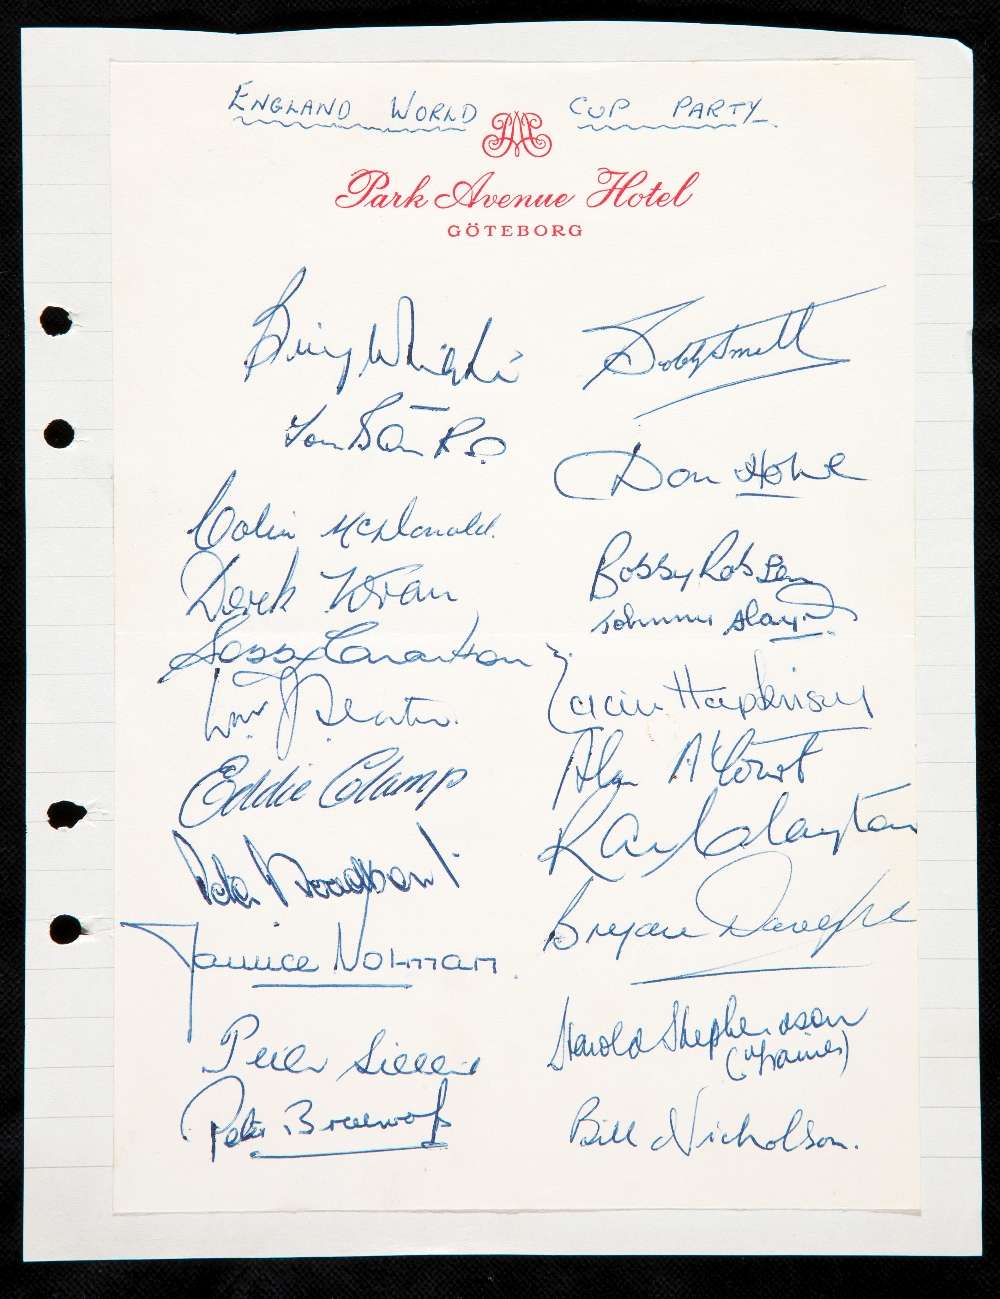 ENGLAND WORLD CUP PARTY
Park Avenue Hotel
GÖTEBORG
Billy Wright
Bobby Smith
Tom Banks
Don Howe
Colin McDonald.
Bobby Robson
Derek Kevan
Johnny Haynes
Bobby Charlton
Eddie Hopkinson
Wm J Slater.
Alan A'Court
Eddie Clamp
R Clayton
Peter Broadbent.
Bryan Douglas
Maurice Norman.
Harold Shepherdson
(Trainer)
Peter Sillett
Peter Brabrook
Bill Nicholson.